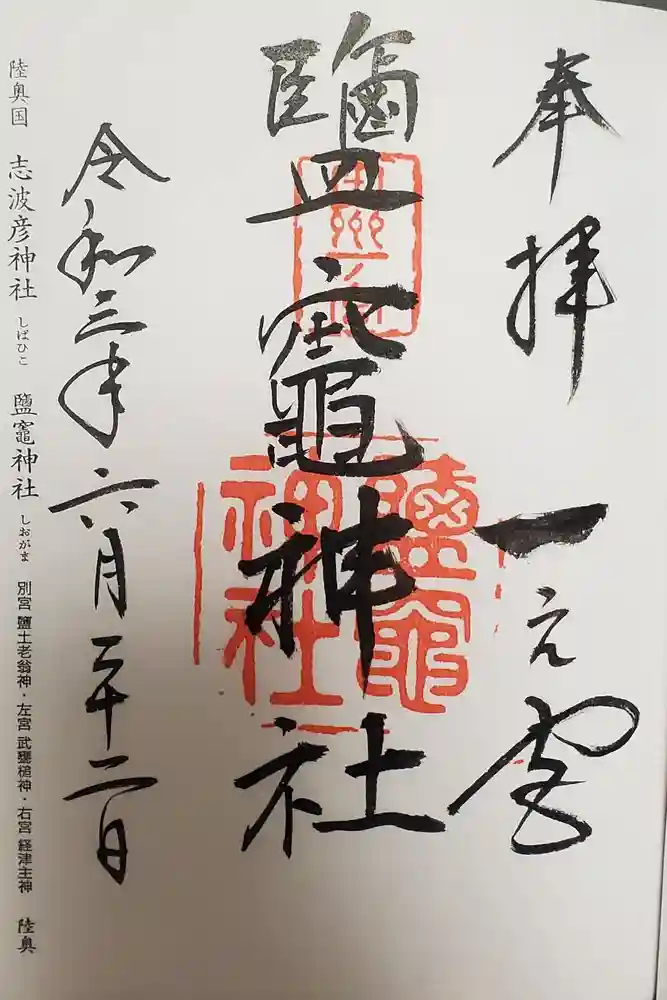 奉拝 一之宮
鹽竈神社
鹽竈神社
令和三年六月二十二日
陸奥国 志波彦神社 しばひこ 鹽竈神社 しおがま 別宮 鹽土老翁神・左宮 武甕槌神・右宮 経津主神 陸奥